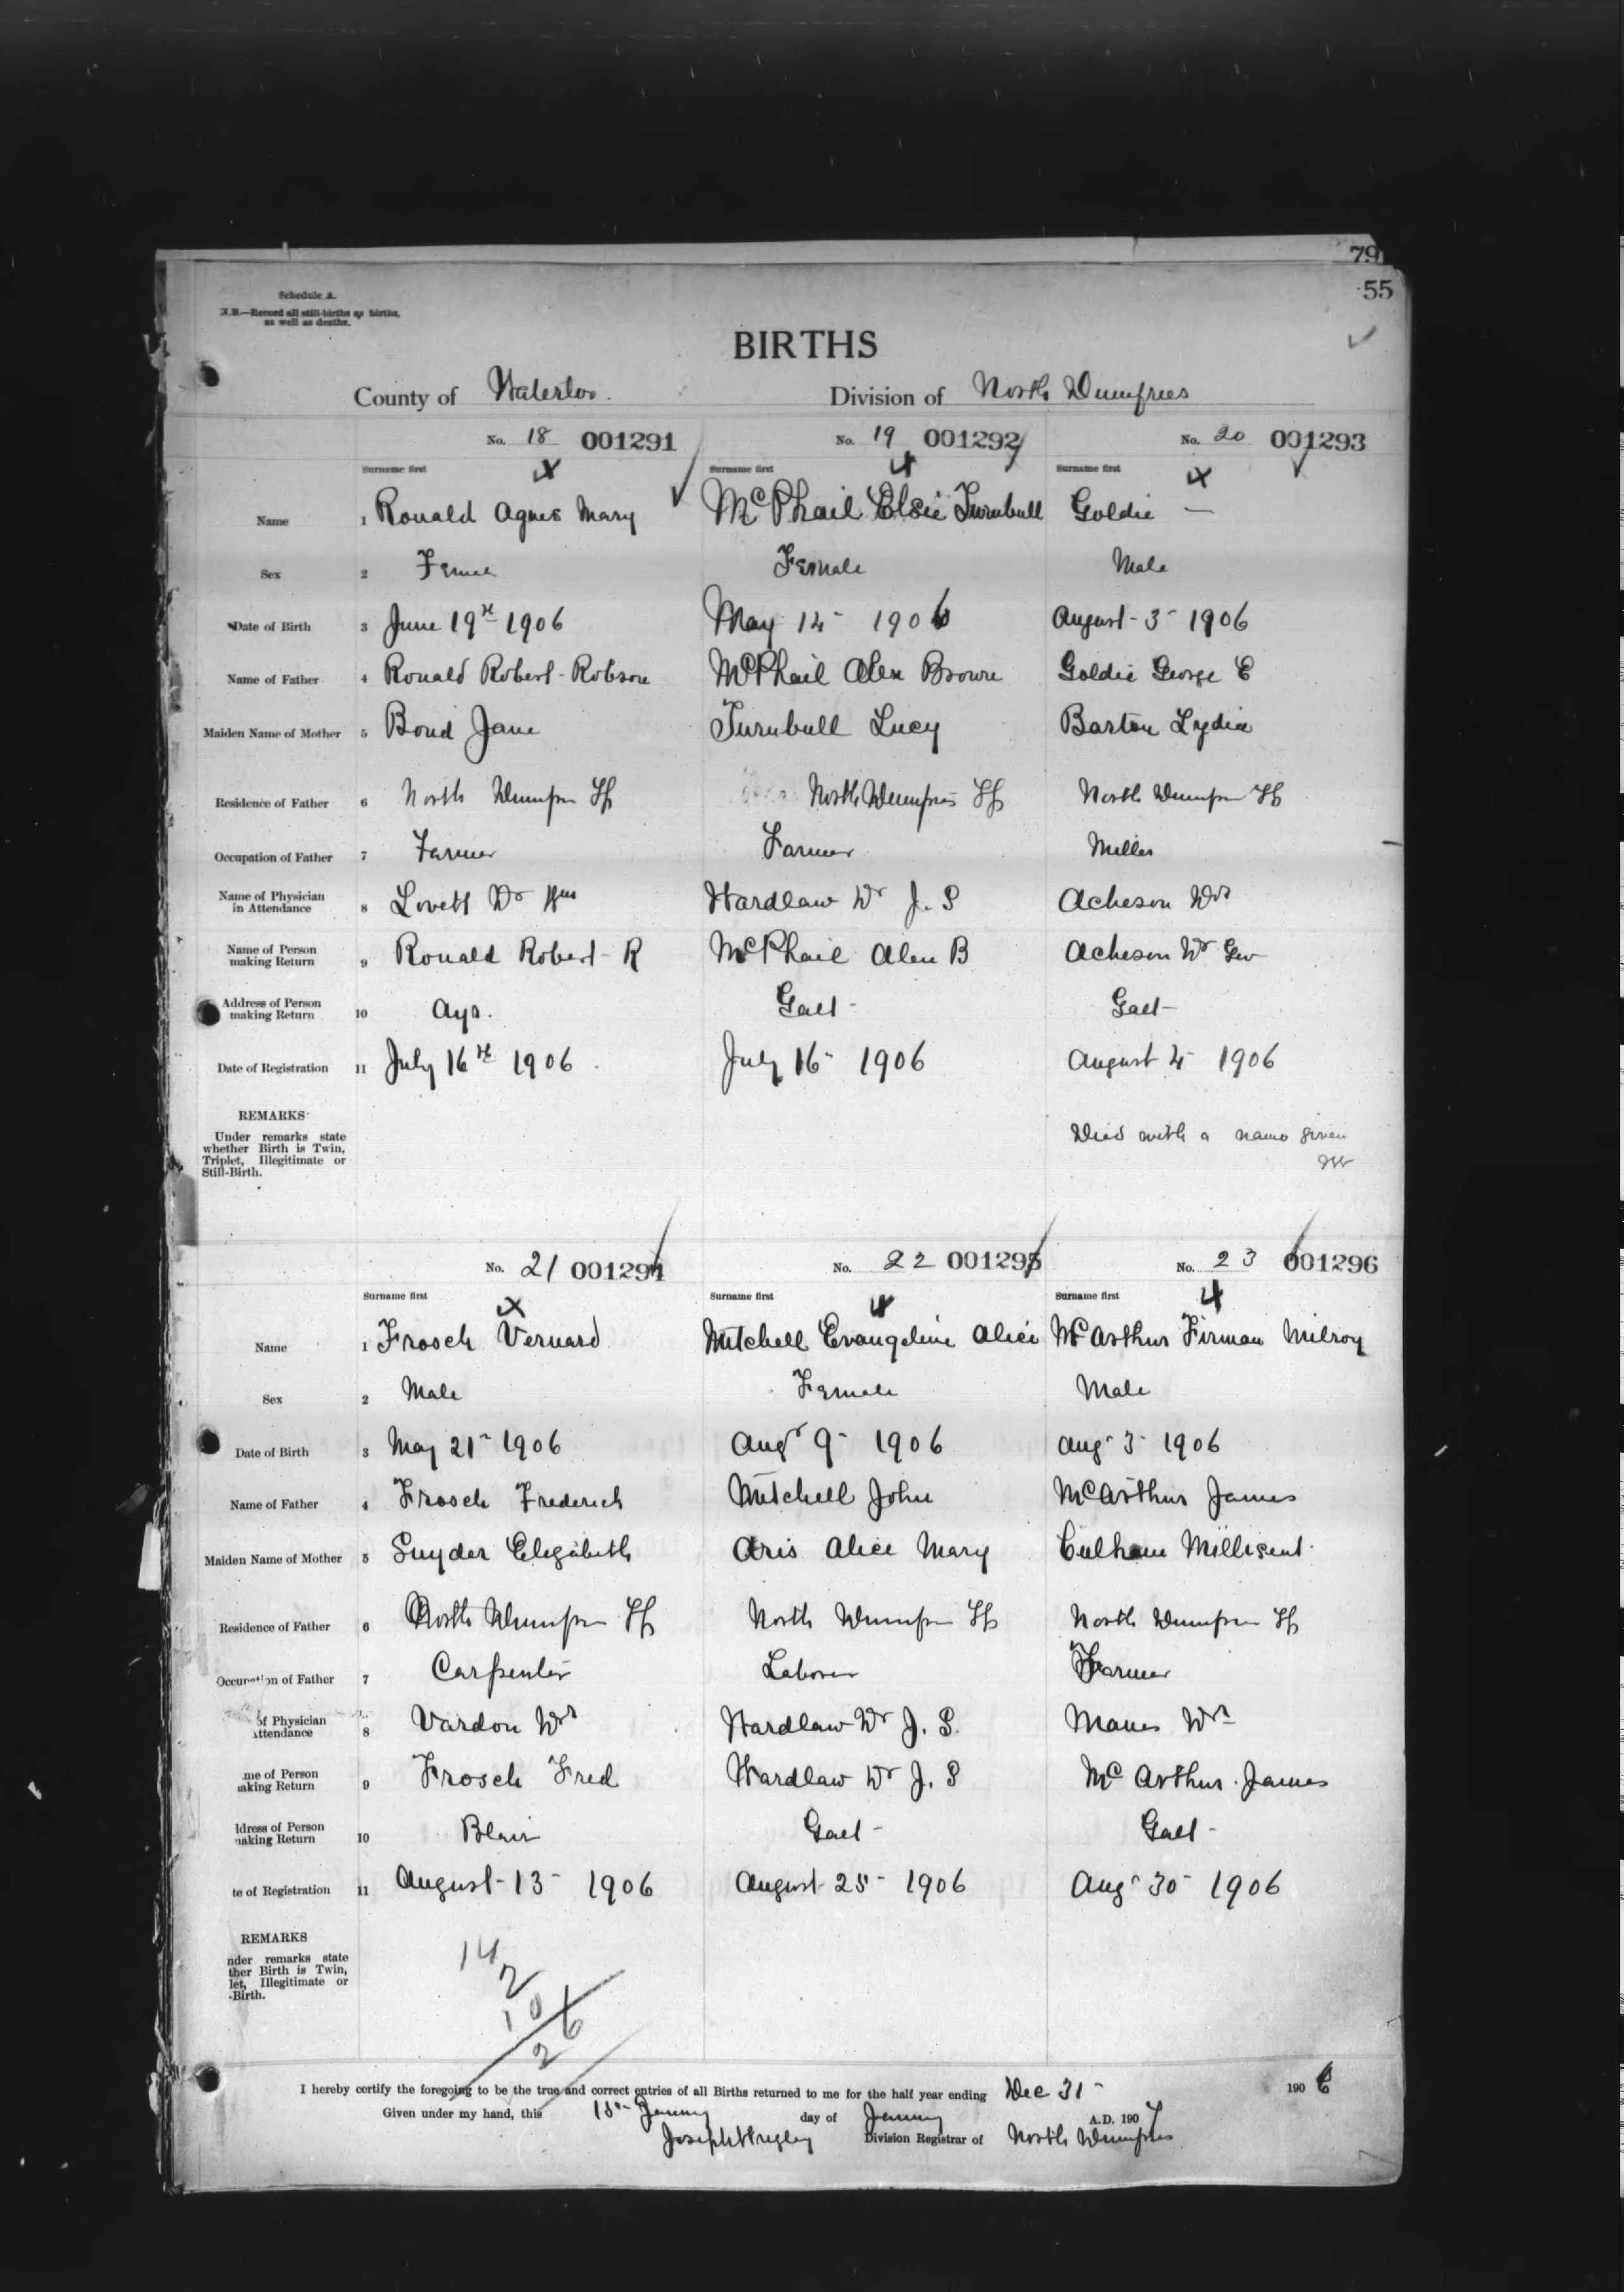 79
55
Schedule A.
N.B.—Record all still-births as births,
as well as deaths.
BIRTHS
County of Waterloo. Division of North Dumfries
No. 18 001291 No. 19 001292 No. 20 001293
Surname first Surname first Surname first
Name 1 Ronald Agnes Mary McPhail Elsie Turnbull Goldie —
Sex 2 Female Female Male
Date of Birth 3 June 19th 1906 May 14 - 1906 August - 3 - 1906
Name of Father 4 Ronald Robert Robson McPhail Alex Brown Goldie George E
Maiden Name of Mother 5 Bond Jane Turnbull Lucy Barton Lydia
Residence of Father 6 North Dumfries Tp North Dumfries Tp North Dumfries Tp
Occupation of Father 7 Farmer Farmer Miller
Name of Physician
in Attendance 8 Lovett Dr Wm Wardlaw Dr J. S Acheson Dr
Name of Person
making Return 9 Ronald Robert R McPhail Alex B Acheson Dr Geo
Address of Person
making Return 10 Ayr. Galt - Galt -
Date of Registration 11 July 16th 1906 July 16 - 1906 August 4 - 1906
REMARKS
Under remarks state
whether Birth is Twin,
Triplet, Illegitimate or
Still-Birth.
Died with a name given
No. 21 001294 No. 22 001295 No. 23 001296
Surname first Surname first Surname first
Name 1 Frosch Vernard Mitchell Evangeline Alice McArthur Firman Milroy
Sex 2 Male Female Male
Date of Birth 3 May 21 - 1906 Augt 9 - 1906 Aug - 3 - 1906
Name of Father 4 Frosch Frederich Mitchell John McArthur James
Maiden Name of Mother 5 Snyder Elizabeth Aris Alice Mary Culham Millisent
Residence of Father 6 North Dumfries Tp North Dumfries Tp North Dumfries Tp
Occupation of Father 7 Carpenter Laborer Farmer
of Physician
Attendance 8 Vardon Dr Wardlaw Dr J. S. Manes Dr
me of Person
aking Return 9 Frosch Fred Wardlaw Dr J. S McArthur James
ldress of Person
naking Return 10 Blair Galt - Galt -
te of Registration 11 August - 13 - 1906 August - 25 - 1906 Aug - 30 - 1906
REMARKS
nder remarks state
ther Birth is Twin,
let, Illegitimate or
-Birth.
14
2
10
26
I hereby certify the foregoing to be the true and correct entries of all Births returned to me for the half year ending Dec 31 - 1906
Given under my hand, this 15th day of January A.D. 1907
Joseph Wrigley Division Registrar of North Dumfries